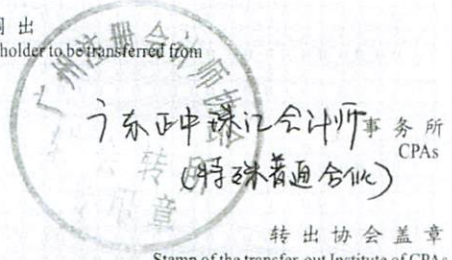 调出
holder to be transferred from
广东正中珠江会计师事务所
CPAs
(特殊普通合伙)
转出协会盖章
Stamp of the transfer-out Institute of CPAs
广州注册会计师协会
转所
章